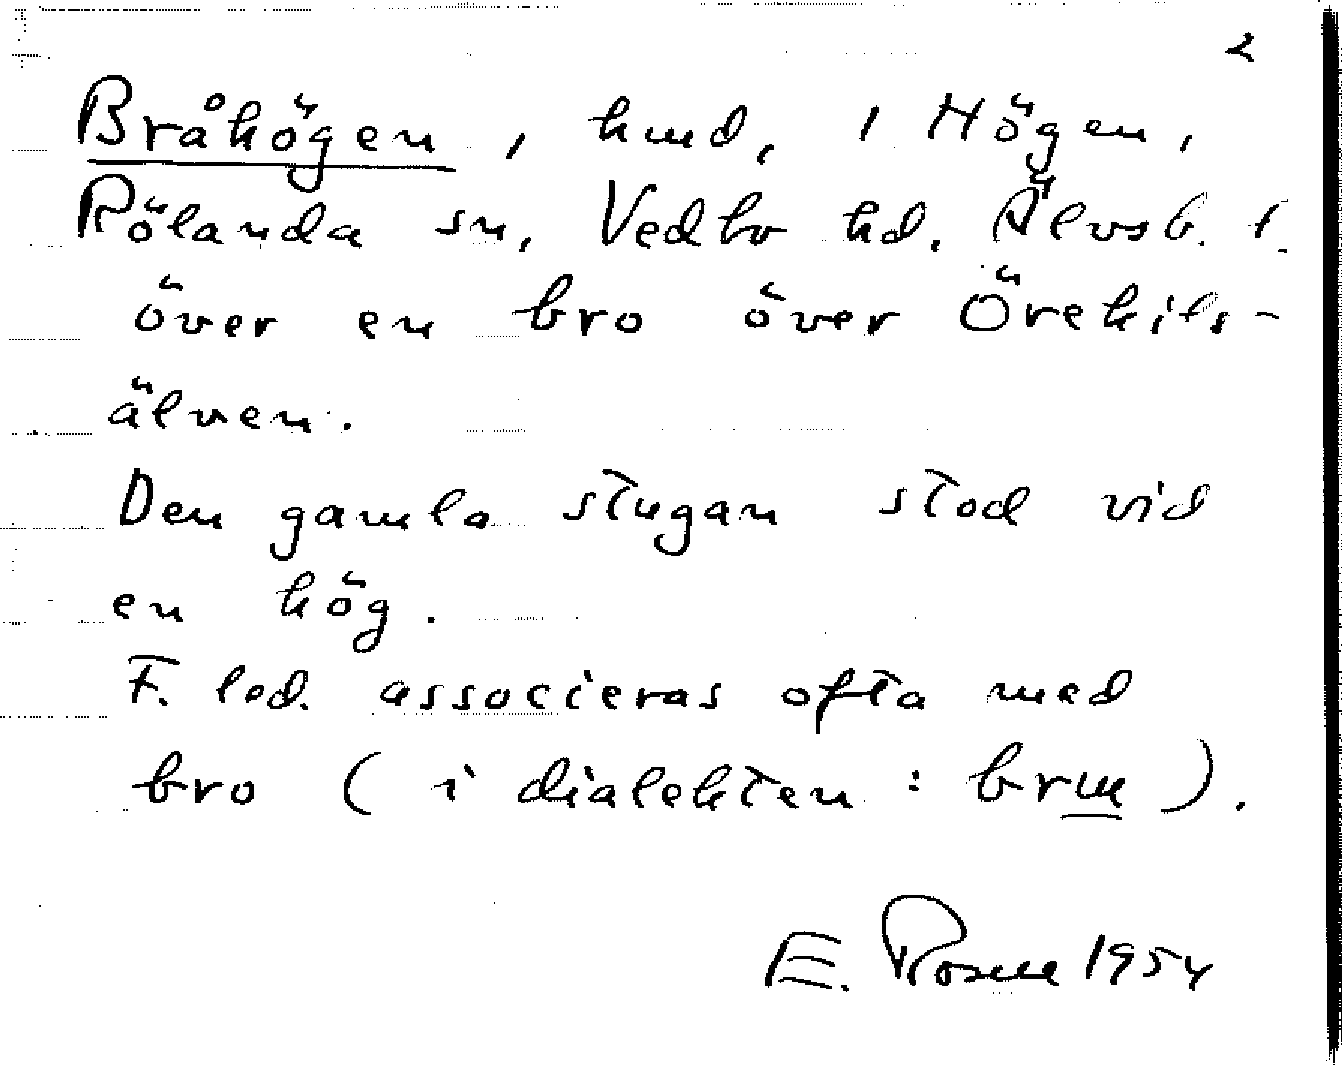 2
Bråhögen, hmd, 1 Högen,
Rölanda sn, Vedbo hd. Älvsb. l.
över en bro över Örekils-
älven.
Den gamla stugan stod vid
en hög.
F. led. associeras ofta med
bro (i dialekten :
E. 1954